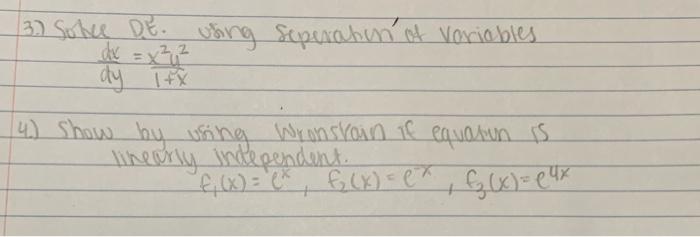 3.) Solve D.E. using Seperation of variables
dx/dy = x²y²/1+x
4.) Show by using Wronskain if equation is
linearly independent.
f₁(x) = eˣ, f₂(x) = e⁻ˣ, f₃(x) = e⁴ˣ